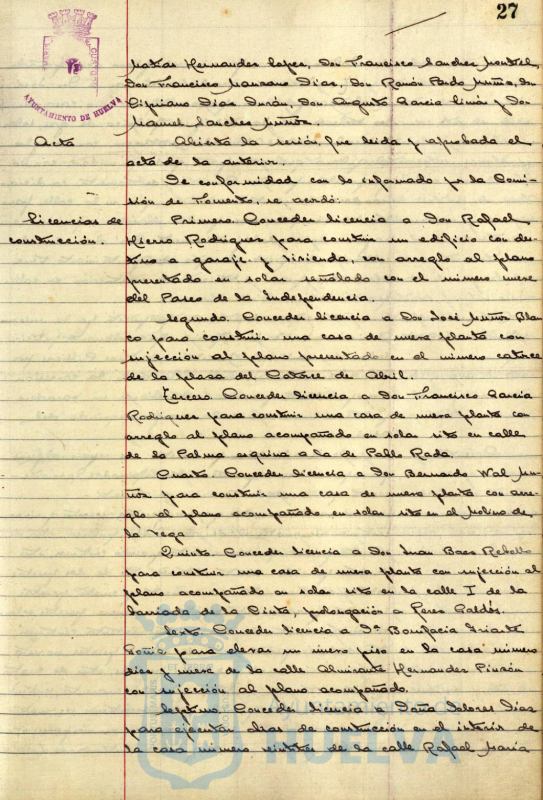 27
AYUNTAMIENTO DE HUELVA
Matias Hernandez Lopez, Don Francisco Sanchez Montiel,
Don Francisco Manzano Dias, Don Ramón Pardo Muñiz, Don
Cipriano Dias Durán, Don Augusto Garcia Limón y Don
Manuel Sanchez Muñoz.
Acta
Abierta la sesión, fue leida y aprobada el
acta de la anterior.
De conformidad con lo informado por la Comi-
sión de Fomento, se acordó:
Licencias de
construcción.
Primero. Conceder licencia a Don Rafael
Hierro Rodriguez para construir un edificio con des-
tino a garaje y vivienda, con arreglo al plano
presentado en solar señalado con el número nueve
del Paseo de la Independencia.
Segundo. Conceder licencia a Don José Muñoz Blan
co para construir una casa de nueva planta con
sujección al plano presentado en el número catorce
de la plaza del Catorce de Abril.
Tercero. Conceder licencia a Don Francisco Garcia
Rodriguez para construir una casa de nueva planta con
arreglo al plano acompañado en solar sito en calle
de la Palma esquina a la de Pablo Rada.
Cuarto. Conceder licencia a Don Bernardo Wal Mu-
ñoz para construir una casa de nueva planta con arre-
glo al plano acompañado en solar sito en el Molino de
la Vega
Quinto. Conceder licencia a Don Juan Baez Rebollo
para construir una casa de nueva planta con sujección al
plano acompañado en solar sito en la calle I de la
barriada de la Cinta, prolongación a Perez Galdós.
Sexto. Conceder licencia a Dª Bonifacia Iriarte
Goñia para elevar un nuevo piso en la casa número
diez y nueve de la calle Almirante Hernandez Pinzón
con sujección al plano acompañado.
Septimo. Conceder licencia a Doña Dolores Dias
para ejecutar obras de construcción en el interior de
la casa número veintitres de la calle Rafael Maria
HUELVA